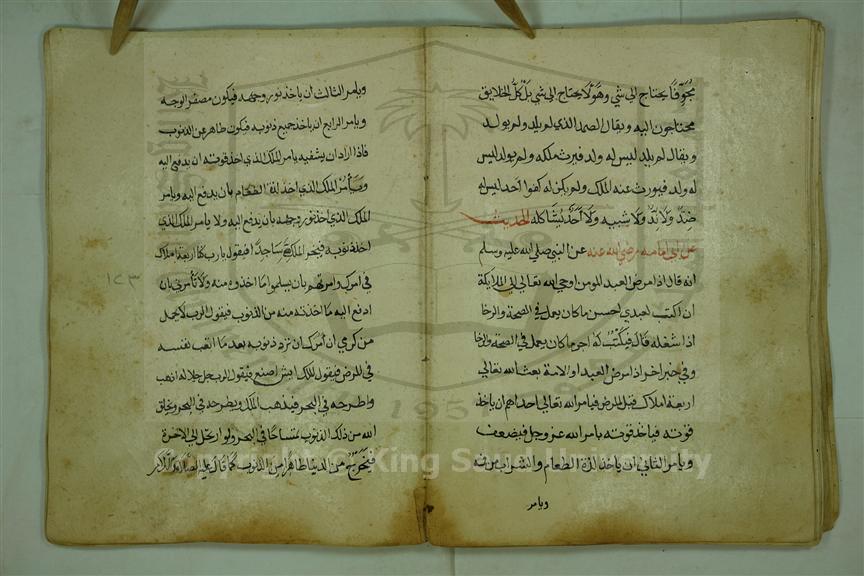 مُجَوَّفًا يحتاج الي شي وهَوَ لا يحتاج الي شي بَلْ كُلُّ الخلايق
محتاجون اليه ويقال الصمد الذي لم يلد ولم يولد
ويقال لم يلد ليس له ولد فيرث ملكه ولم يولد ليس
له ولد فيورث عنه الملك ولم يكن له كفوا أحد ليس له
ضِدٌّ وَلا نِدٌّ ولا شبيه وَلا أحَدٌ يُشَاكله الحديث
عن ابي امامه رضي الله عنه عن النبي صلي الله عليه وسلم
انه قال اذا مرض العبد المومن اوحي الله تعالي الي الملايكة
ان اكتب لعبدي احسن ما كان يعمل في الصحة والرخا
اذا شغله قال فيكتبُ له اجر ما كان يعمل في الصحة والرخا
وفي خبر اخر اذا مرض العبد او الامة بعث الله تعالي
اربعة املاك قبل المرض فيامر الله تعالي احدهم ان ياخذ
قوته فياخذ قوته بامر الله عز وجل فيضعف
ويامر الثاني ان ياخذ لذة الطعام والشراب من
ويامر
ويامر الثالث ان ياخذ نور وجهه فيكون مصفر الوجه
ويامر الرابع ان ياخذ جميع ذنوبه فيكون طاهر عن الذنوب
فاذا اراد ان يشفيه يامر الملك الذي اخذ قوته ان يدفع اليه
ويأمُرُ الملك الذي اخذ لذة الطعام بان يدفع اليه ويامر
الملك الذي اخذ نور وجهه بان يدفع اليه ولا يامر الملك الذي
اخذ ذنوبه فيخر الملك ساجدًا فيقول يارب كنا اربعة املاك
في امرك وامرتهم بان يسلموا ما اخذوه منه ولا تأمرني بان
ادفع اليه ما اخذته منه من الذنوب فيقول الرب لا يجمل
من كرمي ان آمرك ان ترد ذنوبه بعد ما اتعب نفسه
في المرض فيقول الملك ايش اصنع فيقول الرب جل جلاله اذهب
واطرحه في البحر فيذهب الملك ويطرحه في البحر ويخلق
الله من ذلك الذنوب تمساحًا في البحر ولو ارتحل الي الاخرة
فيَخرُجُ من الدنيا طاهر من الذنوب كما قال عليه
١٧٣
Copyright © King Saud University
1957